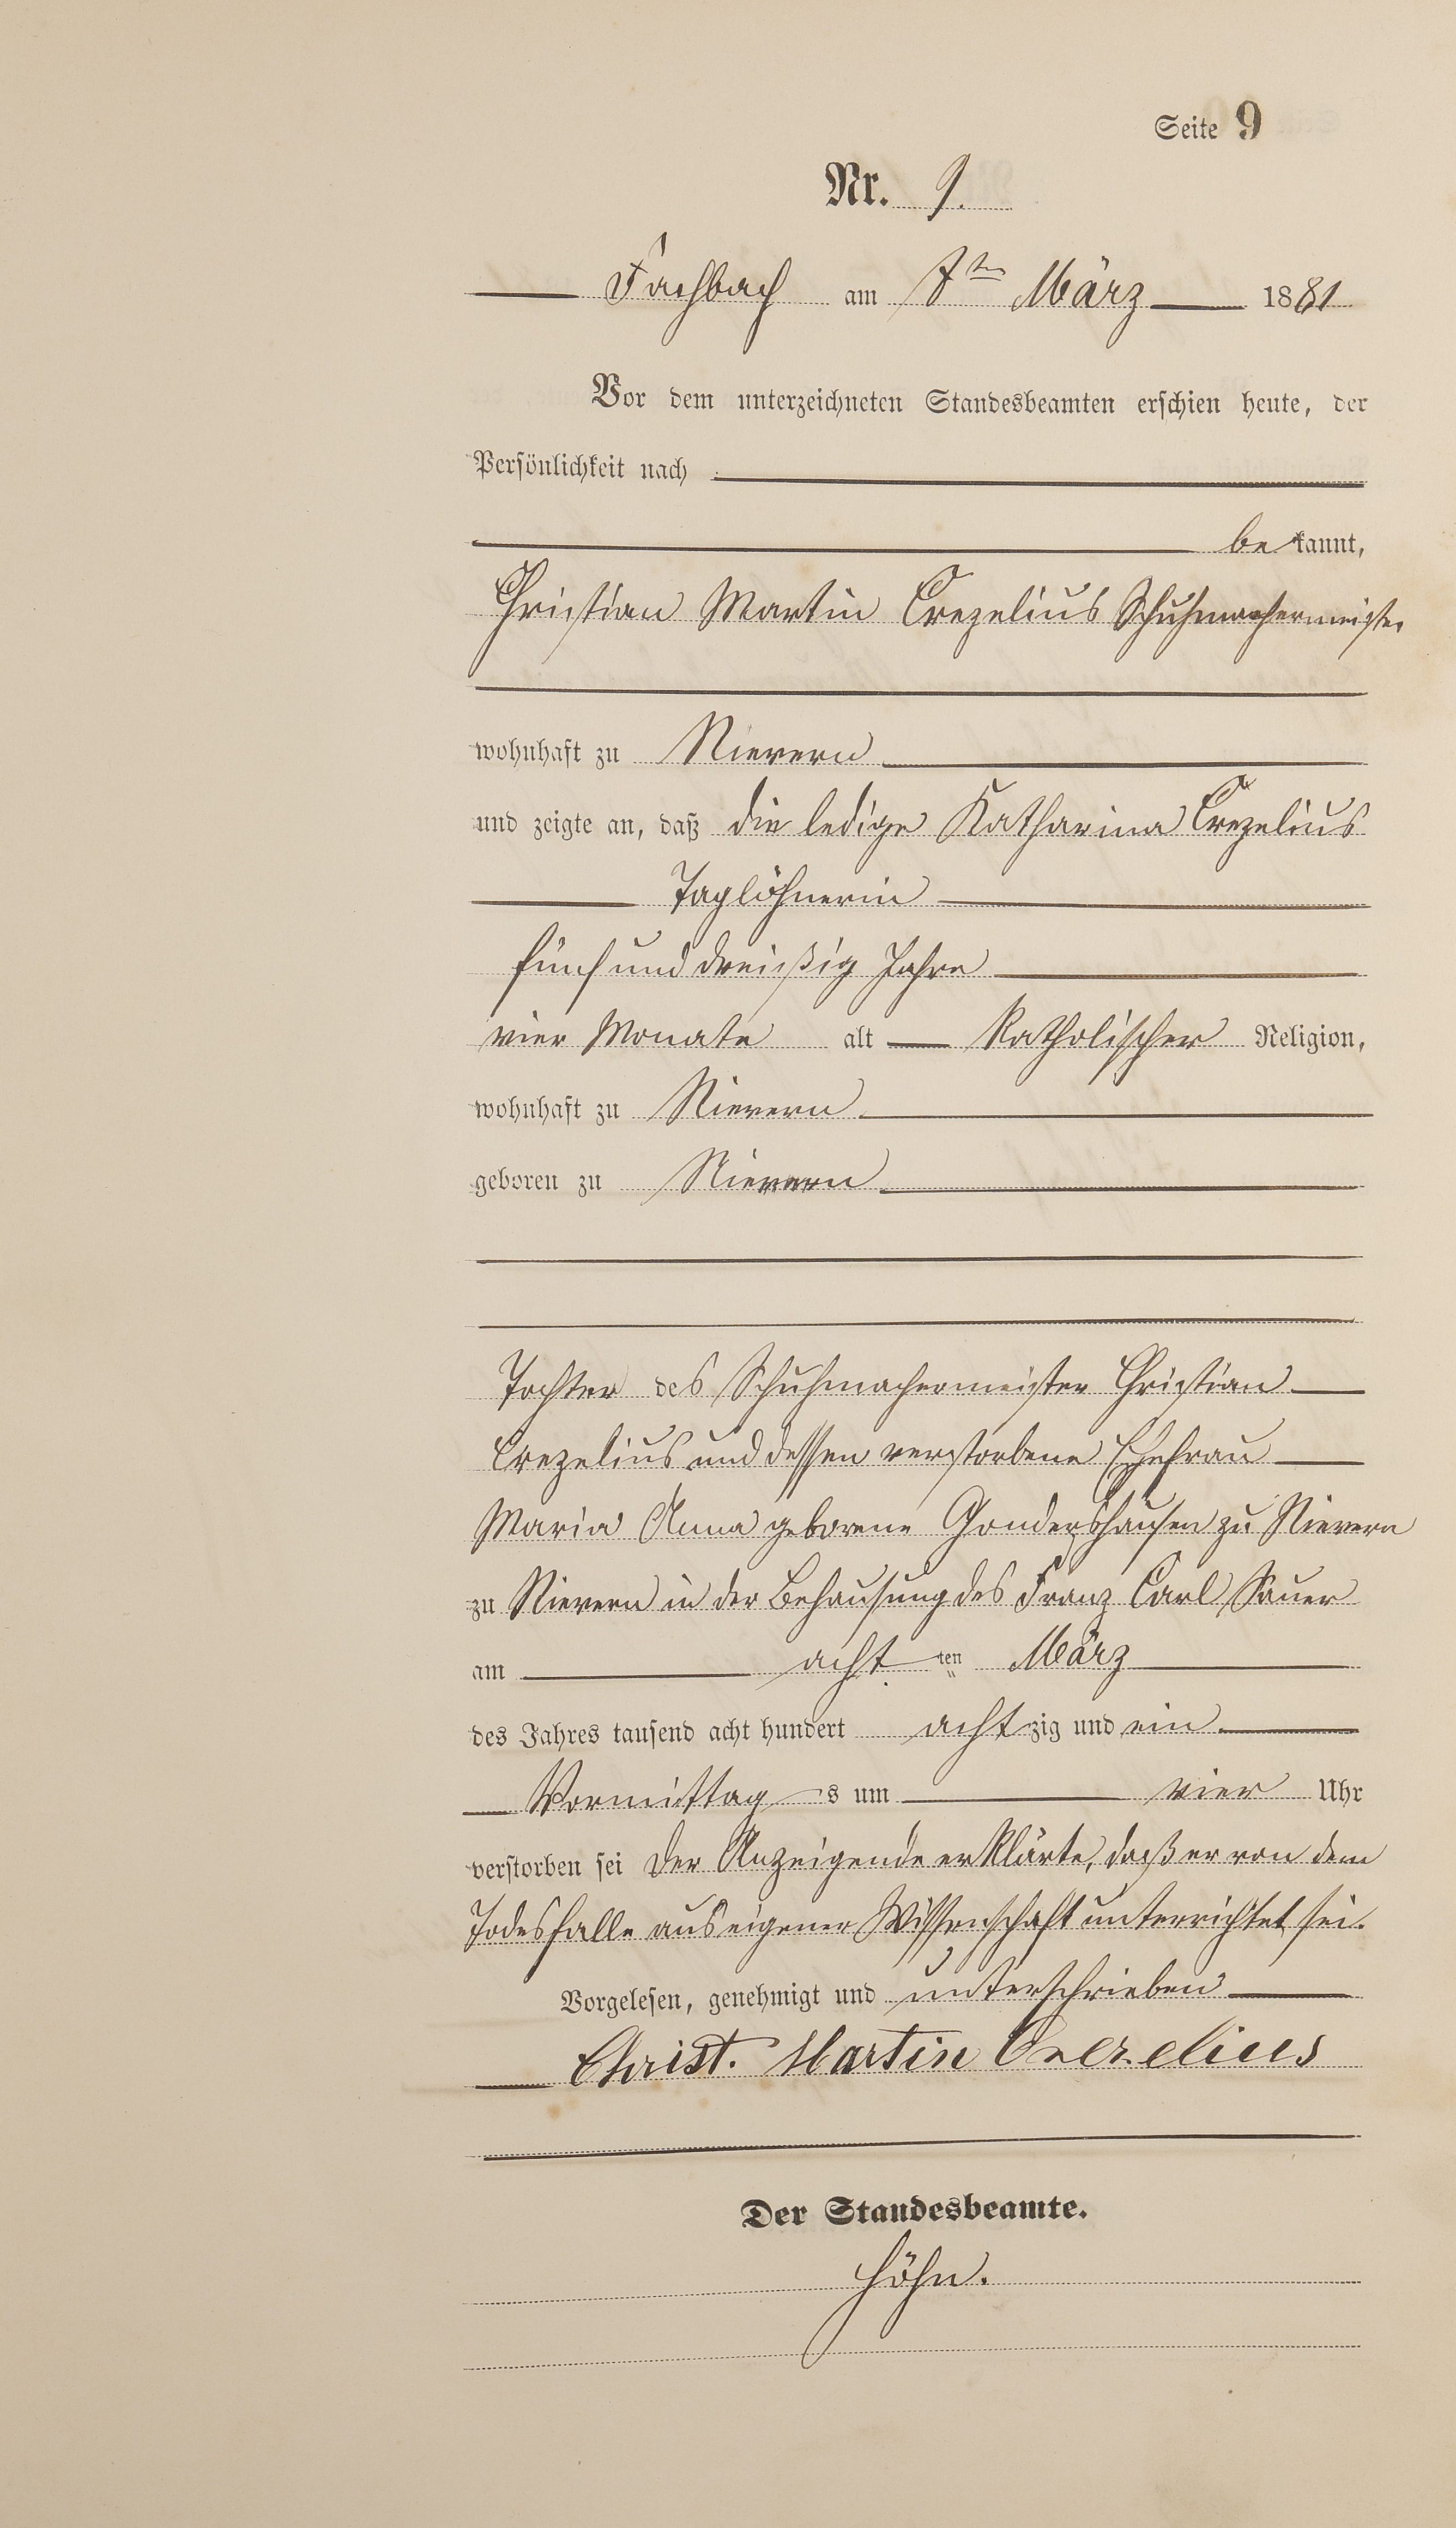 Seite 9
Nr. 9.
Fachbach am 8ten März 1881
Vor dem unterzeichneten Standesbeamten erschien heute, der
Persönlichkeit nach
bekannt,
Christian Martin Crezelius Schuhmachermeister
wohnhaft zu Nievern
und zeigte an, daß die ledige Katharina Crezelius
Taglöhnerin
fünf und dreißig Jahre
vier Monate alt katholischer Religion,
wohnhaft zu Nievern
geboren zu Nievern
Tochter des Schuhmachermeister Christian
Crezelius und dessen verstorbene Ehefrau
Maria Anna geborene Gondershausen zu Nievern
zu Nievern in der Behausung des Franz Carl Sauer
am acht ten März
des Jahres tausend acht hundert achtzig und ein
Vormittags um vier Uhr
verstorben sei Der Anzeigende erklärte, daß er von dem
Todesfalle aus eigener Wissenschaft unterrichtet sei.
Vorgelesen, genehmigt und unterschrieben
Christ. Martin Crezelius
Der Standesbeamte.
Höhn.